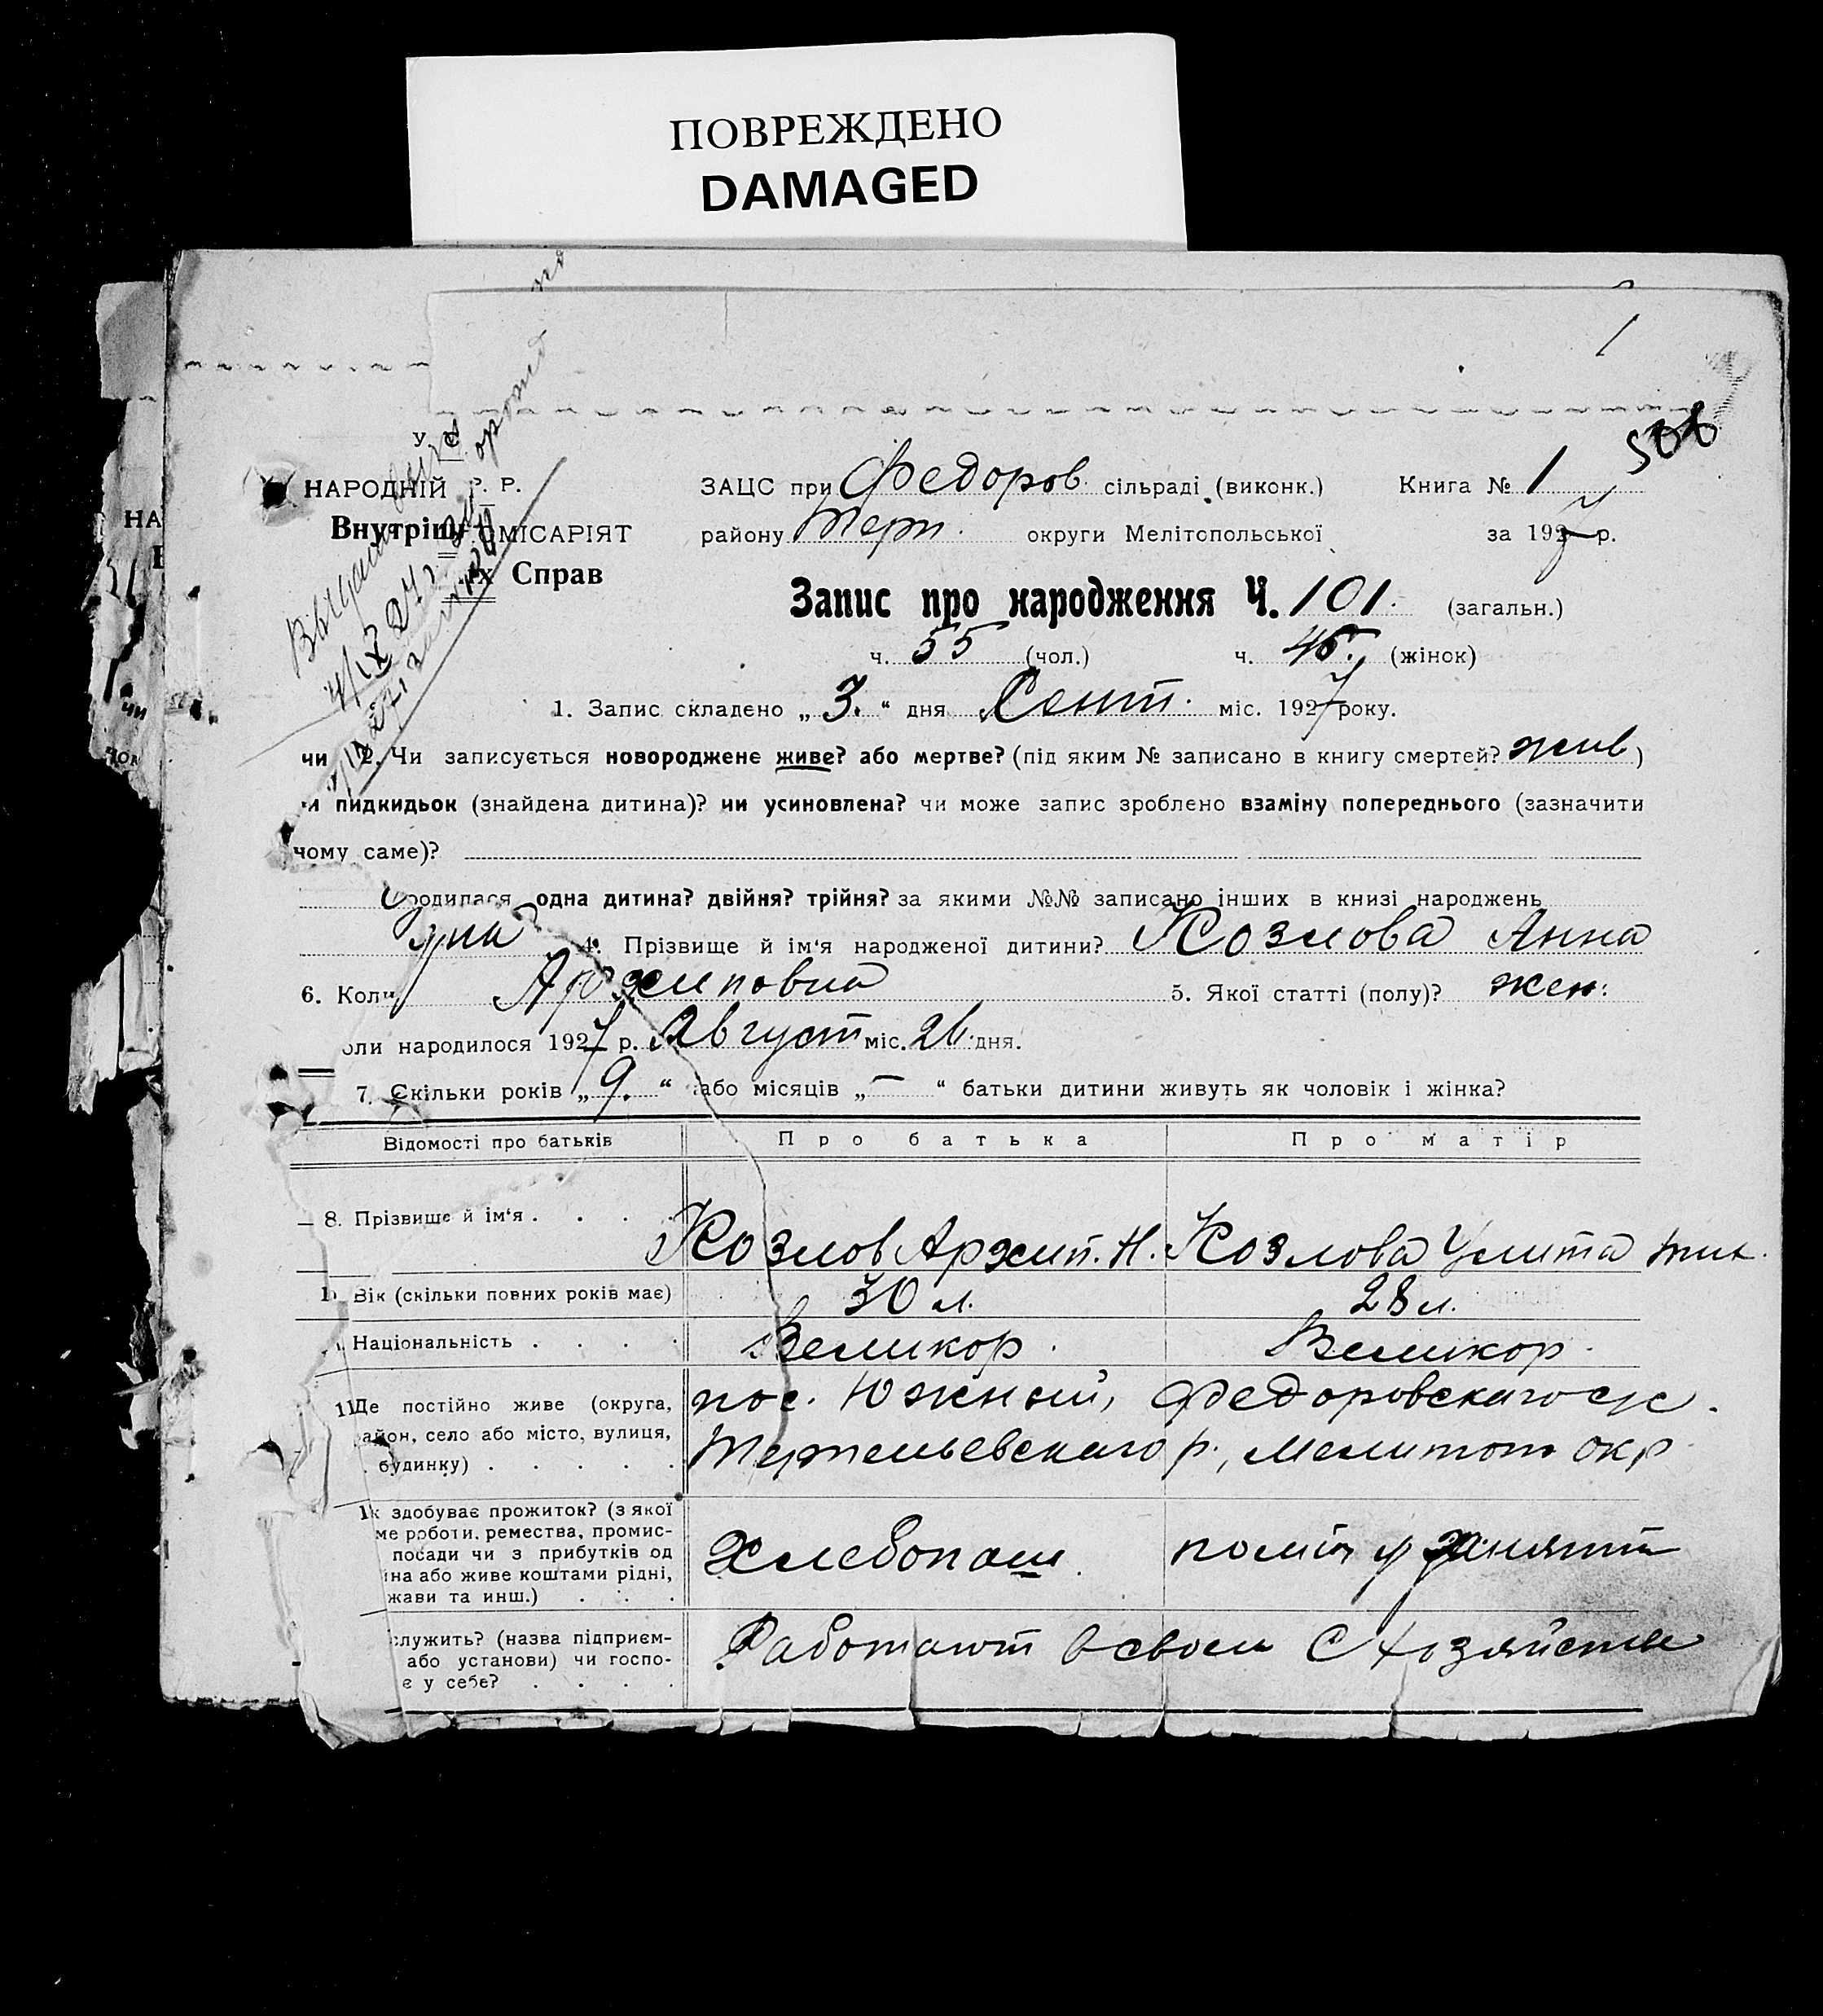 ПОВРЕЖДЕНО
DAMAGED
1
У С
НАРОДНІЙ Р. Р.
Внутріш МІСАРІЯТ
их Справ
ЗАЦС при Федоров. сільраді (виконк.) Книга № 1
району Терп. округи Мелітопольської за 1927 р.
Запис про народження Ч. 101. (загальн.)
ч. 55 (чол.) ч. 46. (жінок)
1. Запис складено „ 3. “ дня Сент. міс. 1927 року.
чи 2. Чи записується новороджене живе? або мертве? (під яким № записано в книгу смертей? жив)
и підкидьок (знайдена дитина)? чи усиновлена? чи може запис зроблено взаміну попереднього (зазначити
чому саме)?
родилася одна дитина? двійня? трійня? за якими №№ записано інших в книзі народжень
4. Прізвище й ім‘я народженої дитини? Козлова Анна
6. Коли Архиповна 5. Якої статті (полу)? жен.
оли народилося 1927 р. Август міс. 26. дня.
7. Скільки років „ 9. “ або місяців „ — “ батьки дитини живуть як чоловік і жінка?
Відомості про батьків Про батька Про матір
8. Прізвище й ім‘я . . . . Козлов Архип. Н. Козлова Улита Тит.
Вік (скільки повних років має) 30 л. 28 л.
Національність . . . . Великор. Великор.
11 Де постійно живе (округа, пос. Южный, Федоровскаго с/с.
айон, село або місто, вулиця, Терпельевскаго р., Мелитоп окр
будинку) . . . . .
1к здобуває прожиток? (з якої
ме роботи, ремества, промис-
посади чи з прибутків од Хлебопаш.
іна або живе коштами рідні,
жави та инш.) . . .
служить? (назва підприєм- Работают в своем С Хозяйстве
або установи) чи госпо-
є у себе? . . . .